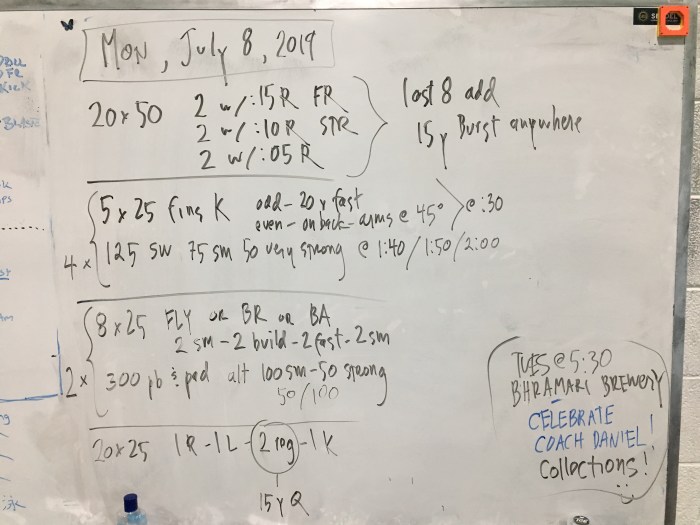 MON, July 8, 2019
20x50 2 w/:15 R FR
2 w/:10 R STR
2 w/:05 R
last 8 add
15 y Burst anywhere
4x
5 x 25 fins K odd - 20 y fast
even - on back - arms @ 45° @ :30
125 SW 75 sm 50 very strong @ 1:40/1:50/2:00
2x
8 x 25 FLY OR BR OR BA
2 sm - 2 build - 2 fast - 2 sm
300 pb & pad alt 100 sm - 50 strong
50/100
20x25 1R - 1L - 2 reg - 1K
15 y Q
TUES @ 5:30
BHRAMARI BREWERY
CELEBRATE
COACH DANIEL!
Collections!